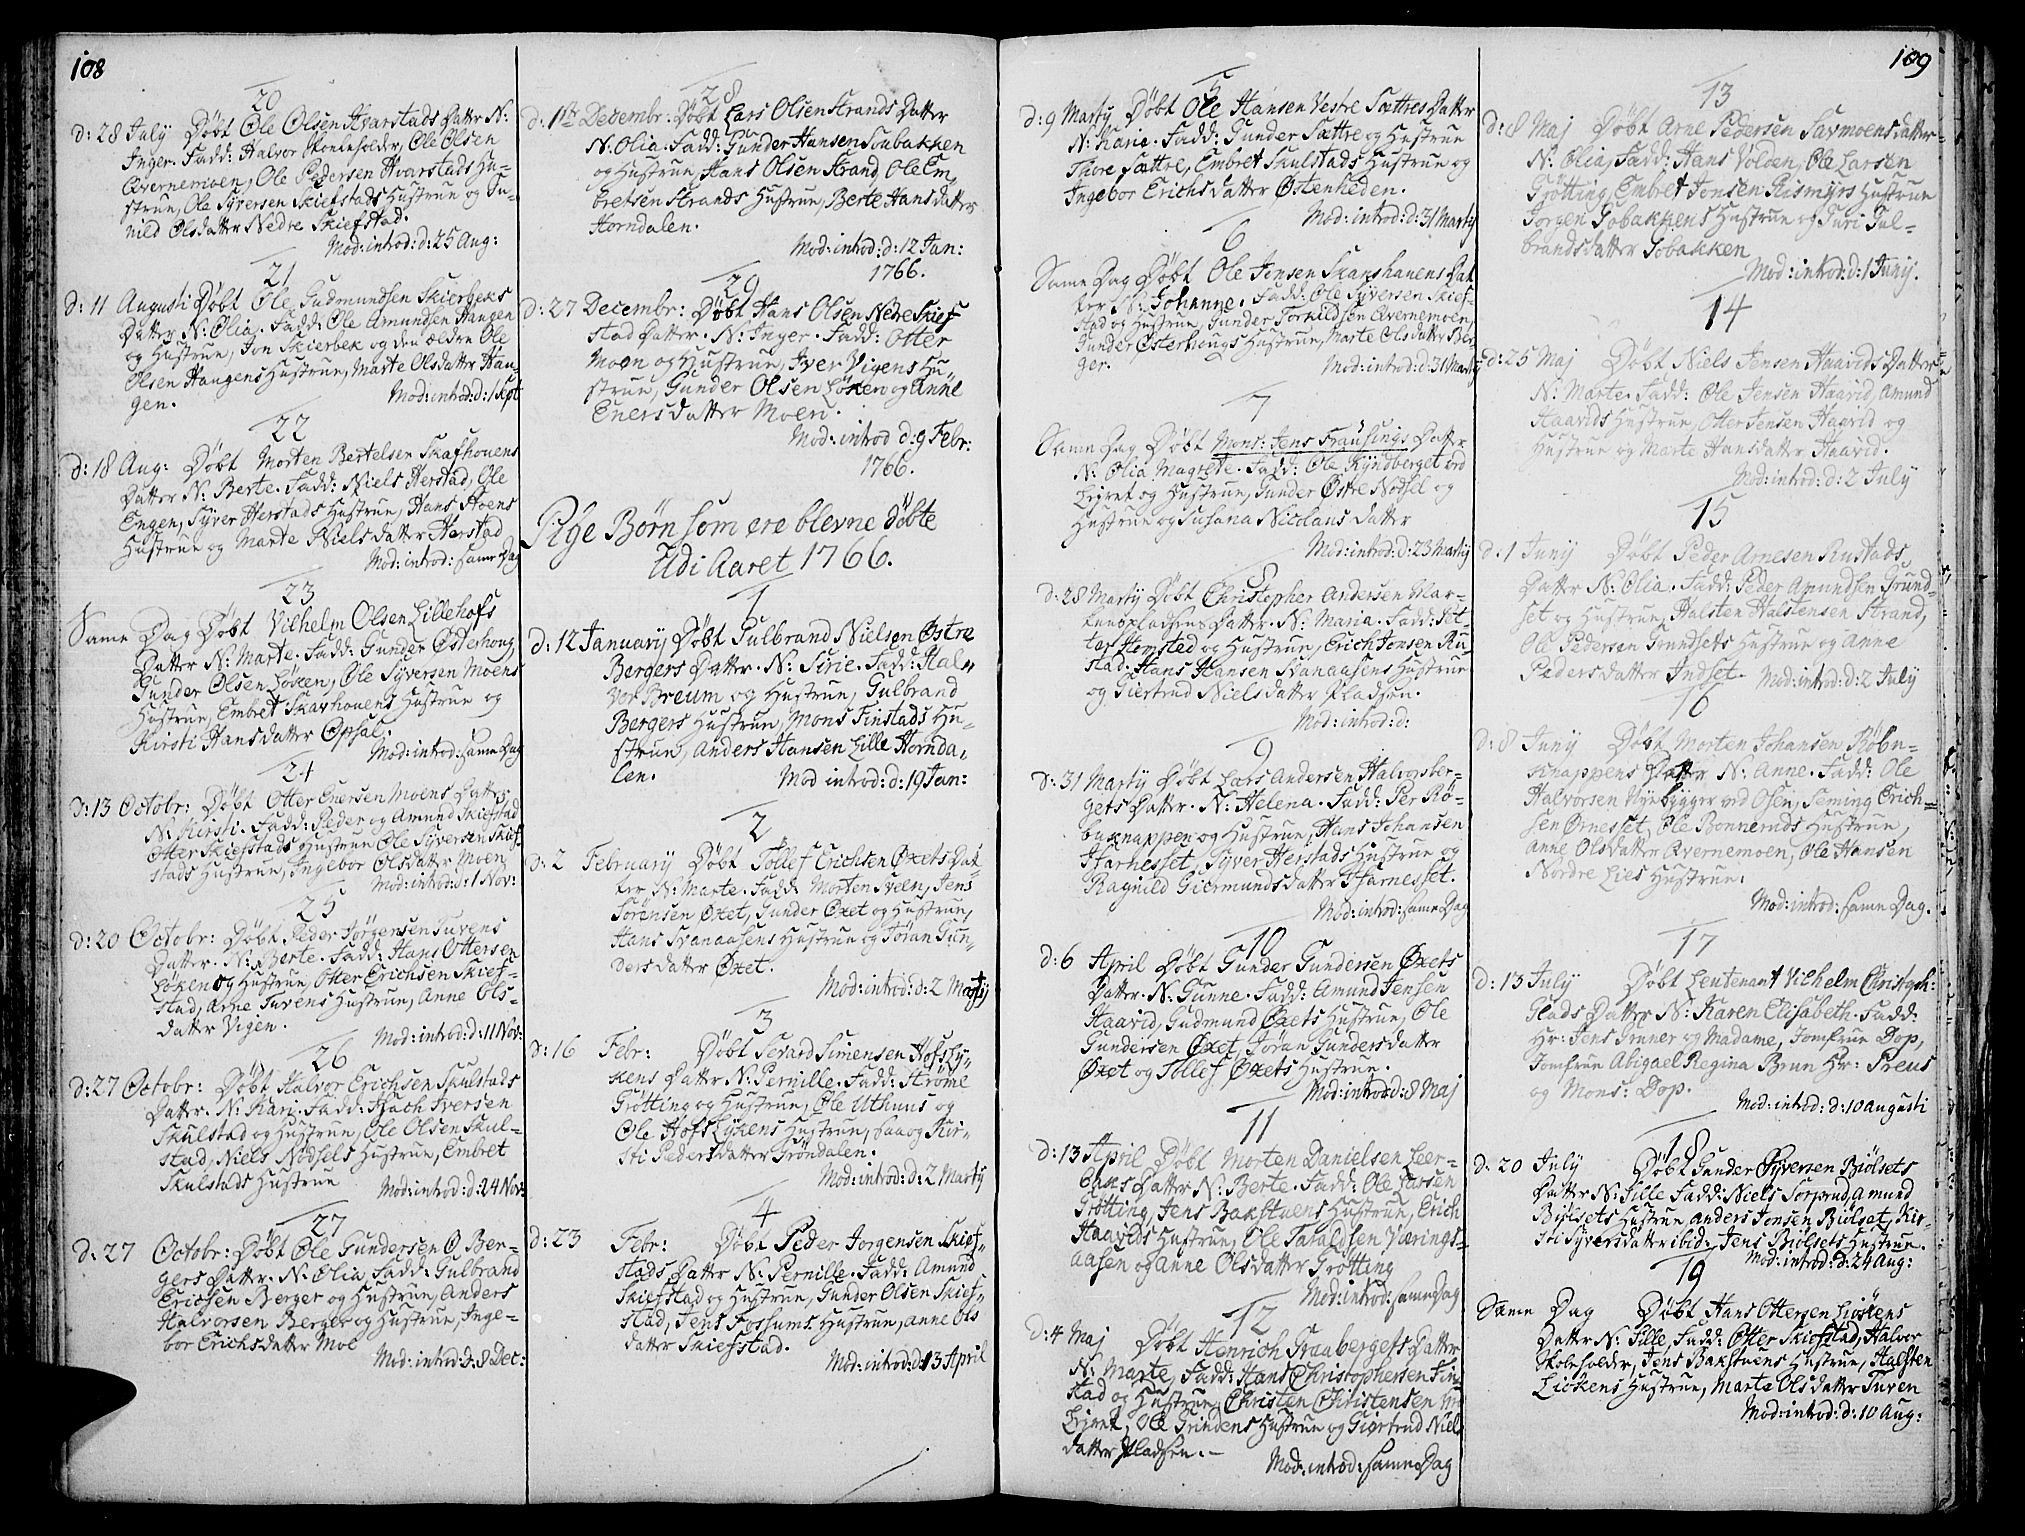 108
20
d: 28 July Døbt Ole Olsen Hvarstads Datter N:
Inger. Fadd: Halvor Skoleholder, Ole Olsen
Qvernemoen, Ole Pedersen Hvarstads Hu-
strue, Ole Syversen Skiefstads Hustrue og Gu-
nild Olsdatter Nedre Skiefstad.
Mod: introd: d: 25 Aug:
21
d: 11 Augusti Døbt Ole Gudmundsen Skierbeks
Datter N: Olia. Fadd: Ole Amundsen Haugen
og Hustrue, Jon Skierbek og den ældre Ole
Olsen Haugens Hustrue, Marte Olsdatter Hau-
gen.
Mod: introd: d: 1 Sept
22
d: 18 Aug: Døbt Morten Bertelsen Skafhouens
Datter N: Berte. Fadd: Niels Herstad, Ole
Engen, Syver Herstads Hustrue, Hans Moens
Hustrue og Marte Nielsdatter Herstad
Mod: introd: same Dag
23
Same Dag Døbt Vilhelm Olsen Lillehofs
Datter N: Marte. Fadd: Gunder Østerhoug,
Gunder Olsen Løken, Ole Syversen Moens
Hustrue, Embret Skavhouens Hustrue og
Kirsti Hansdatter Opsal.
Mod: introd: same Dag
24
d: 13 Octobr: Døbt Otter Enersen Moens Datter
N: Kirsti. Fadd: Peder og Amund Skiefstad
Otter Skiefstads Hustrue Ole Syversen Skief-
stads Hustrue, Ingebor Olsdatter Moen
Mod: introd: d: 1 Nov:
25
d: 20 Octobr: Døbt Peder Jørgensen Tuvens
Datter. N: Berte. Fadd: Hans Ottersen
Løken og Hustrue, Otter Erichsen Skief-
stad, Arne Tuvens Hustrue, Anne Ols-
datter Vigen.
Mod: introd: d: 11 Nov:
26
d: 27 Octobr: Døbt Halvor Erichsen Skulstads
Datter. N: Kari. Fadd: Hach Iversen
Skulstad og Hustrue, Ole Olsen Skul-
stad, Niels Nødsels Hustrue, Embret
Skulstads Hustrue
Mod: introd: d: 24 Nov:
27
d: 27 Octobr: Døbt Ole Gundersen Ø Ber-
gers Datter. N: Olia. Fadd: Gulbrand
Ericsen Berger og Hustrue, Anders
Halvorsen Berger og Hustrue, Inge-
bor Erichsdatter Moe
Mod: introd: d: 8 Dec:
28
d: 1ste Decembr: Døbt Lars Olsen Strands Datter
N: Olia. Fadd: Gunder Hansen Soubakken
og Hustrue, Hans Olsen Strand, Ole Em-
bretsen Strands Hustrue, Berte Hansdatter
Horndalen.
Mod: introd: d: 12 Jan:
1766.
29
d: 27 Decembr: Døbt Hans Olsen Nedre Skief
stad Datter. N: Inger. Fadd: Otter
Moen og Hustrue, Iver Vigens Hu-
strue, Gunder Olsen Løken og Anne
Enersdatter Moen.
Mod: introd d: 9 Febr:
1766.
Pige Børn som ere blevne døbte
Udi Aaret 1766.
1
d: 12 January Døbt Gulbrand Nielsen Østre
Bergers Datter. N: Sirie. Fadd: Hal-
vor Breum og Hustrue, Gulbrand
Bergers Hustrue, Mons Finstads Hu-
strue, Anders Hansen Lille Hornda-
len.
Mod introd: d: 19 Jan:
2
d: 2 February Døbt Tollef Erichsen Øxets Dat-
ter N: Marte. Fadd Morten Sveen, Jens
Sørensen Øxet, Gunder Øxet og Hustrue,
Hans Svanaasens Hustrue og Jøran Gun-
dersdatter Øxet.
Mod: introd: d: 2 Marty
3
d: 16 Febr: Døbt Sevard Simensen Hofsly-
kens Datter N: Pernille. Fadd: Strøme
Grøtting og Hustrue, Ole Uthuus og
Ole Hofslykens Hustrue, saa og Kir-
sti Pedersdatter Grøndalen.
Mod: introd: d: 2 Marty
4
d: 23 Febr: Døbt Peder Jorgensen Skief-
stads Datter N: Pernille. Fadd: Amund
Skiefstad og Hustrue, Gunder Olsen Skief-
stad, Jens Fossums Hustrue, Anne Ols
datter Skiefstad.
Mod: introd: d: 13 April
109
5
d: 9 Marty Døbt Ole Hansen Vestre Sættres Datter
N: Karie. Fadd: Gunder Sættre og Hustrue
Thore Sættre, Embret Skulstads Hustrue og
Ingebor Erichsdatter Østenheden.
Mod: introd: d: 31 Marty
6
Same Dag Døbt Ole Jonsen Skarshauens Dat
ter N: Johanne. Fadd: Ole Syversen Skief-
stad og Hustrue, Gunder Torkildsen Qvernemoen,
Gunder Østerhougs Hustrue, Marte Olsdatter Ber-
ger.
Mod: introd: d: 31 Marty
7
Same Dag Døbt Mons: Jens Frausings Datter
N: Olia Magrete. Fadd: Ole Kyndberget ved
Leyret og Hustrue, Gunder Østre Nødsel og
Hustrue og Susana Nicolaus datter
Mod: introd: d: 23 Marty
8
d: 28 Marty Døbt Christopher Andersen Mar-
kensplads Datter. N: Maria. Fadd: Pet-
ter Homsted og Hustrue, Erich Jonsen Ru-
stad. Hans Hansen Svanaasens Hustrue
og Giertrud Nielsdatter Pladsen.
Mod: introd: d:
9
d: 31 Marty Døbt Lars Andersen Halvorsber-
gets Datter. N: Helena. Fadd: Per Rø-
buknappen og Hustrue, Hans Johansen
Harnesset, Syver Herstads Hustrue og
Ragnild Giermundsdatter Harnesset.
Mod: introd: same Dag
10
d: 6 April Døbt Gunder Gundersen Øxets
Datter. N: Gunne. Fadd: Amund Jensen
Haavid, Gudmund Øxets Hustrue, Ole
Gundersen Øxet, Jøran Gundersdatter
Øxet og Tollef Øxets Hustrue.
Mod: introd: d: 8 Maj
11
d: 13 April Døbt Morten Danielsen Leer-
baks Datter N: Berte. Fadd: Ole Larsen
Grøtting, Jens Bakstuens Hustrue, Erich
Haavids Hustrue, Ole Taraldsen Værings-
aasen og Anne Olsdatter Grøtting
Mod: introd: same Dag
12
d: 4 Maj Døbt Henrich Graabergets Datter
N: Marte, Fadd: Hans Christophersen Fin-
stad og Hustrue, Christen Christensen ved
Leyret, Ole Grindens Hustrue og Giertrud Niels
datter Pladsen. -
Mod: introd: same Dag
13
d: 8 Maj Døbt Arne Pedersen Savmoens datter
N: Olia, Fadd: Hans Volden, Ole Larsen
Grøtting, Embret Jonsen Rismyrs Hustrue
Jorgen Sobakkens Hustrue og Guri Gul-
brandsdatter Sobakken
Mod: introd: d: 1 Juny.
14
d: 25 Maj Døbt Niels Jensen Haavids Datter
N: Marte. Fadd: Ole Jensen Haavid, Amund
Haavids Hustrue, Otter Jensen Haavid og
Hustrue og Marte Hansdatter Haavid.
Mod: introd: d: 2 July
15
d: 1 Juny Døbt Peder Arnesen Rustads
Datter N: Olia. Fadd: Peder Amundsen Grund-
set og Hustrue, Halsten Halstensen Strand,
Ole Pedersen Grundsets Hustrue og Anne
Pedersdatter Indset.
Mod: introd: d: 2 July
16
d: 8 Juny Døbt Morten Johansen Røbu-
knappens Datter N: Anne. Fadd: Ole
Halvorsen Nyebygger ved Osen, Seming Erich-
sen Ørnesset, Ole Bonneruds Hustrue,
Anne Olsdatter Qvernemoen, Ole Hansen
Nordre Lies Hustrue.
Mod: introd: same Dag.
17
d: 13 July Døbt Leutenant Vilhelm Christoph:
Glads Datter N: Karen Elisabeth. Fadd:
Hr: Jens Tener og Madame, Jomfrue Dop,
Jomfrue Abigael Regina Brun Hr: Preus
og Mons: Dop.
Mod: introd: d: 10 Augusti
18
d: 20 July Døbt Gunder Syversen Biølsets
Datter N: Sille Fadd: Niels Sorprud, Amund
Biølsets Hustrue, Anders Jonsen Biølset, Kir-
sti Syversdatter ibid: Jens Biølsets Hustrue.
Mod: introd: d: 24 Aug:
19
Same Dag Døbt Hans Ottersen Liøkens
Datter N: Sille, Fadd: Otter Skiefstad, Halvor
Skoleholder, Jens Bakstuens Hustrue, Halsten
Liøkens Hustrue, Marte Olsdatter Tuven
Mod: introd: d: 10 Aug: